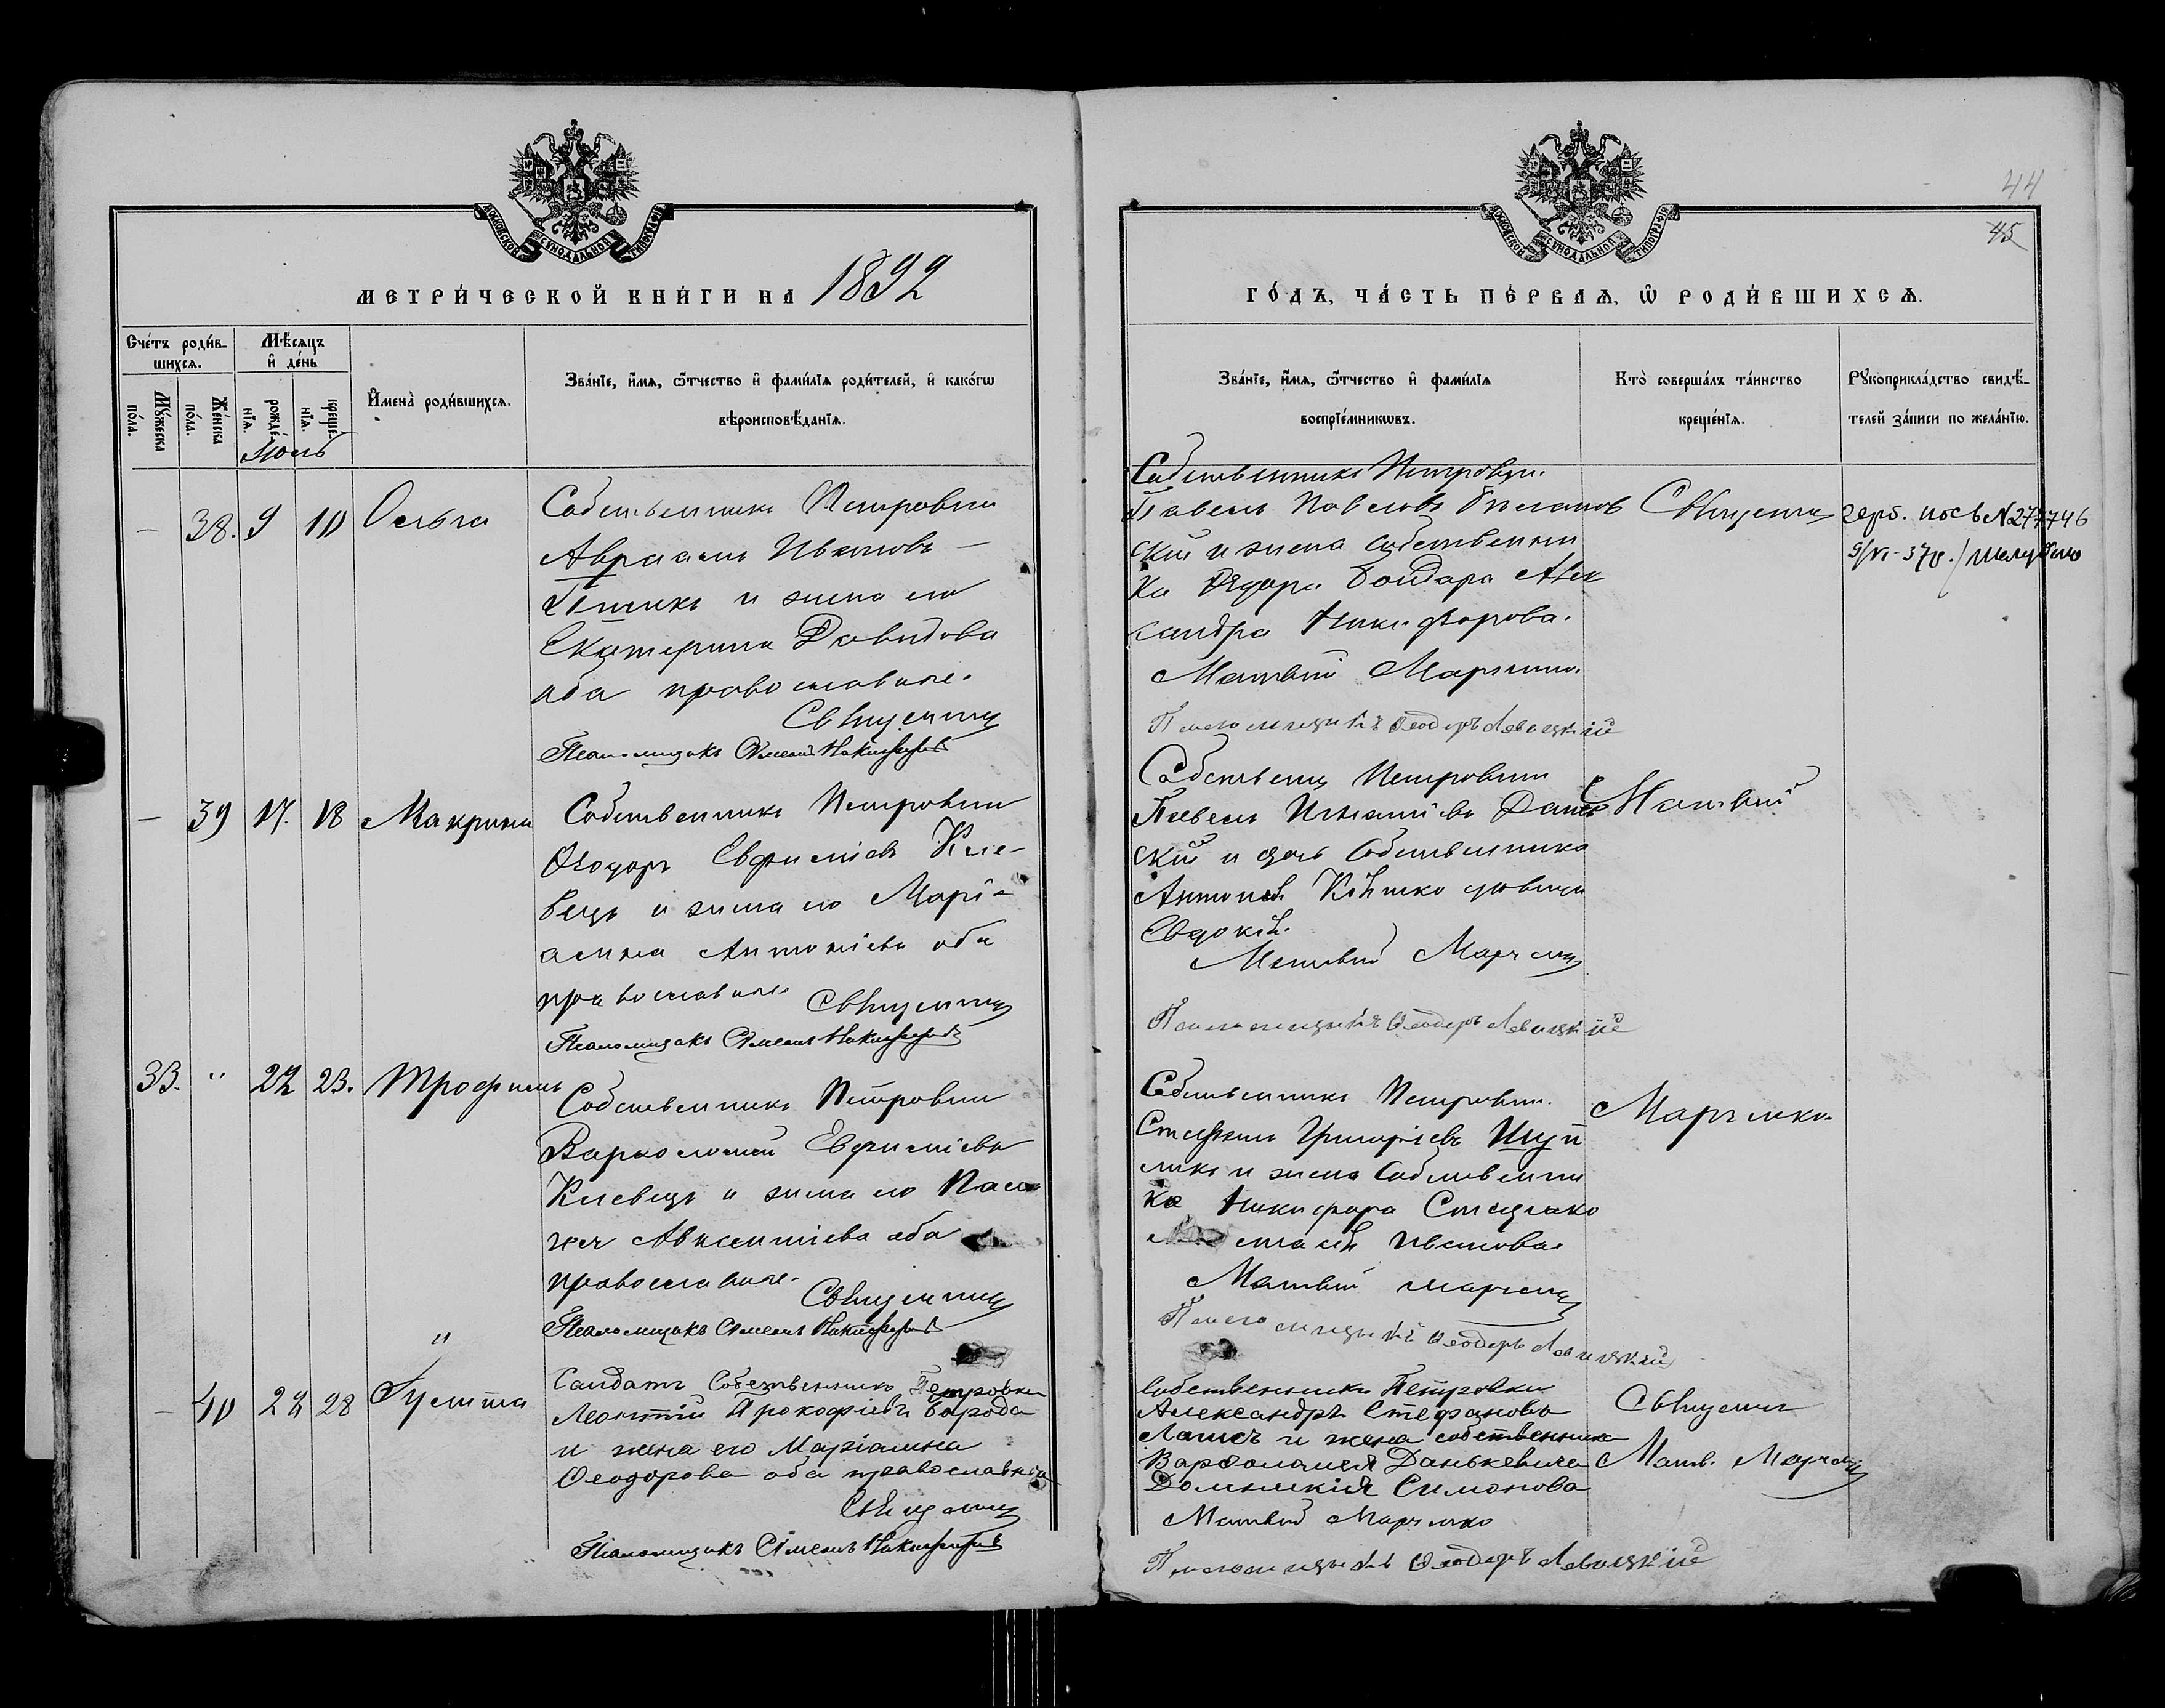 44
45
МОСКОВСКОЙ СѴНОДАЛЬНОЙ ТИПОГРАФІИ
МОСКОВСКОЙ СѴНОДАЛЬНОЙ ТИПОГРАФІИ
МЕТРИ́ЧЕСКОЙ КНИ́ГИ НА 1892
ГО́ДЪ, ЧА́СТЬ ПЕ́РВАѦ, Ѽ РОДИ́ВШИХСѦ.
Сче́тъ роди́в-
шихсѧ.
Мѣ́сѧцъ
и҆ де́нь
Мꙋ́жеска
по́ла.
Же́нска
по́ла.
рожде́-
нїѧ.
креще́-
нїѧ.
Июль
И҆мена̀ роди́вшихсѧ.
Зва́нїе, и҆́мѧ, ѻ҆́тчество и҆ фами́лїѧ роди́телей, и҆ како́гѡ
вѣроисповѣ́данїѧ.
Зва́нїе, и҆́мѧ, ѻ҆́тчество и҆ фами́лїѧ
воспрїе́мникѡвъ.
Кто̀ соверша́лъ та́инство
креще́нїѧ.
Рꙋкоприкла́дство свидѣ́-
телей за́писи по жела́нїю.
— 38. 9 10 Ольга
Собственникъ Петровки
Авраамъ Ивановъ —
и жена его
Екатерина Давидова
оба православные.
Священникъ
Псаломщикъ Симеонъ Никифоровъ
Собственникъ Петровки
Павелъ Павловъ
скій и жена собственни
ка Ѳедора Бондара Алек
сандра Никифорова.
Матвѣй Марченко
Псаломщикъ Ѳеодоръ Левицкій
Священникъ
герб. №277746
— 39 17. 18 Макрина
Собственникъ Петровки
Ѳеодоръ Евфиміевъ Кіе-
вецъ и жена его Марі-
амна Антоніева оба
православные Священникъ
Псаломщикъ Симеонъ Никифоровъ
Собственникъ Петровки
Павелъ Игнатіевъ
скій и дочь Собственника
Антонія девица
Евдокія.
Матвѣй Марченко
Псаломщикъ Ѳеодоръ Левицкій
Матвѣй
33. " 22 23. Трофимъ
Собственникъ Петровки
Варѳоломей Евфиміевъ
Киевецъ и жена его
Авксентіева оба
православные.
Священникъ
Псаломщикъ Симеонъ Никифоровъ
Собственникъ Петровки
Стефанъ Григоріевъ
и жена Собственни
ка Никифора
Иванова
Матвѣй Марченко
Псаломщикъ Ѳеодоръ Левицкій
Марченко.
— 40 28
Солдатъ Собственникъ Петровки
Леонтій Прокофіевъ Борода
и жена его Маріамна
Ѳеодорова оба православные
Священникъ
Псаломщикъ Симеонъ Никифоровъ
Собственникъ Петровки
Александръ Стефановъ
и жена собственника
Варѳоломея Данькевича
Домникія Симонова
Матвѣй Марченко
Псаломщикъ Ѳеодоръ Левицкій
Священникъ
Матв. Марченко